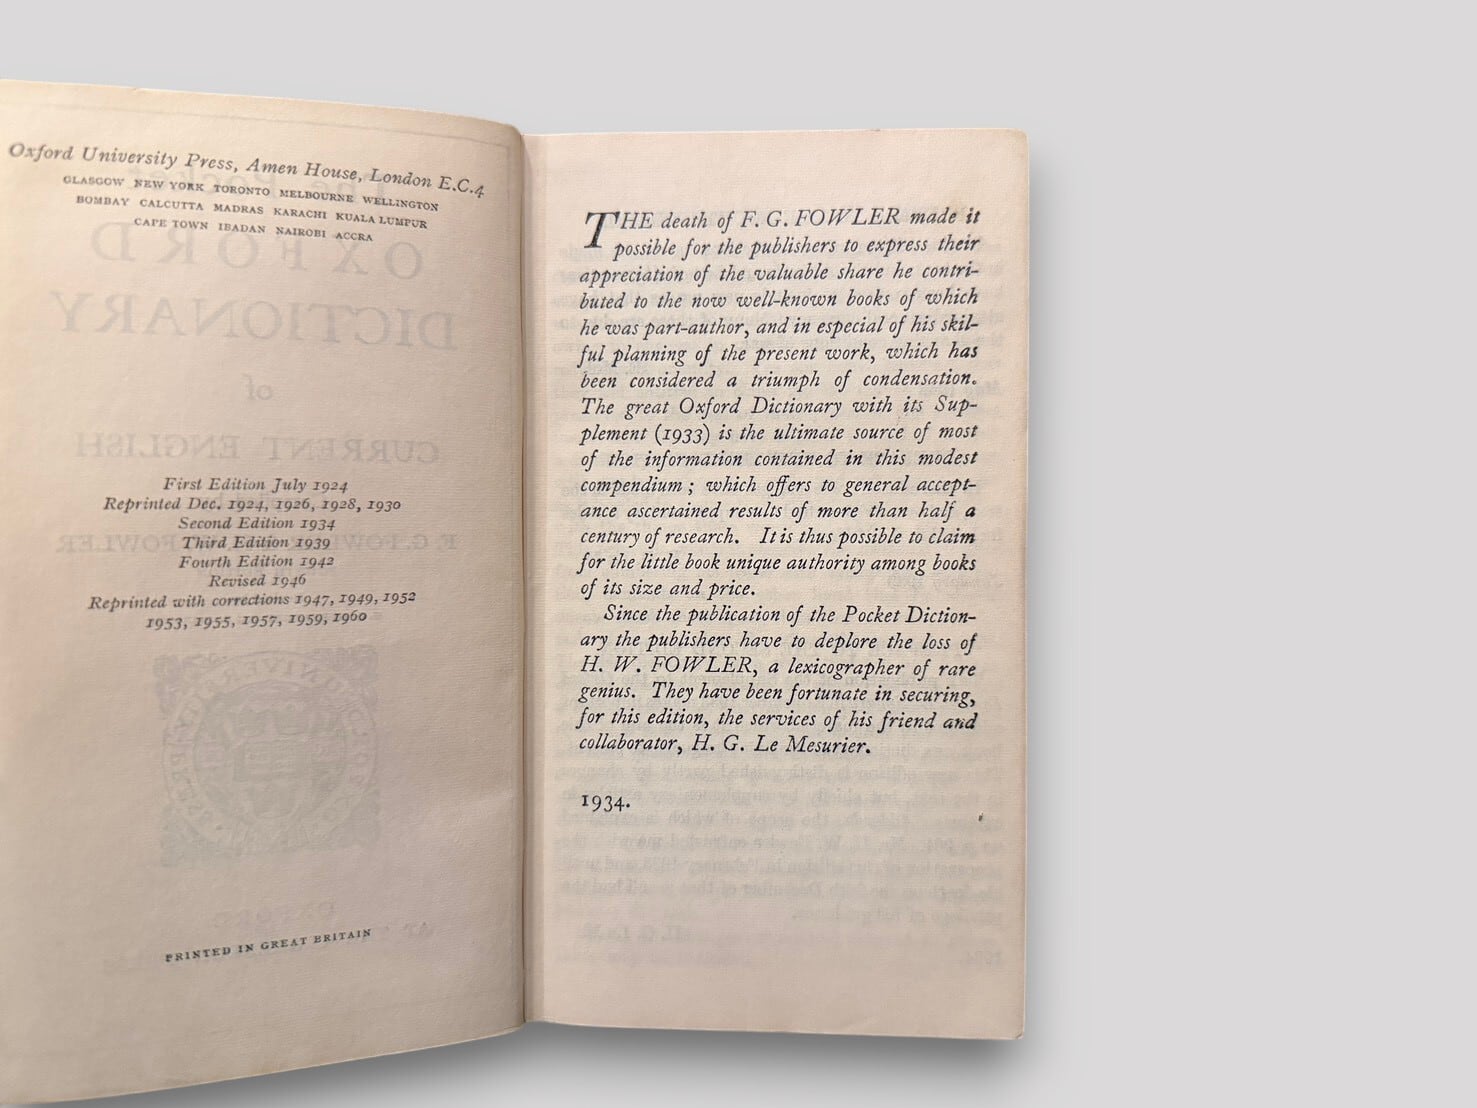 Oxford University Press, Amen House, London E.C.4
GLASGOW NEW YORK TORONTO MELBOURNE WELLINGTON
BOMBAY CALCUTTA MADRAS KARACHI KUALA LUMPUR
CAPE TOWN IBADAN NAIROBI ACCRA
First Edition July 1924
Reprinted Dec. 1924, 1926, 1928, 1930
Second Edition 1934
Third Edition 1939
Fourth Edition 1942
Revised 1946
Reprinted with corrections 1947, 1949, 1952
1953, 1955, 1957, 1959, 1960
PRINTED IN GREAT BRITAIN
THE death of F. G. FOWLER made it
possible for the publishers to express their
appreciation of the valuable share he contri-
buted to the now well-known books of which
he was part-author, and in especial of his skil-
ful planning of the present work, which has
been considered a triumph of condensation.
The great Oxford Dictionary with its Sup-
plement (1933) is the ultimate source of most
of the information contained in this modest
compendium; which offers to general accept-
ance ascertained results of more than half a
century of research. It is thus possible to claim
for the little book unique authority among books
of its size and price.
Since the publication of the Pocket Diction-
ary the publishers have to deplore the loss of
H. W. FOWLER, a lexicographer of rare
genius. They have been fortunate in securing,
for this edition, the services of his friend and
collaborator, H. G. Le Mesurier.
1934.